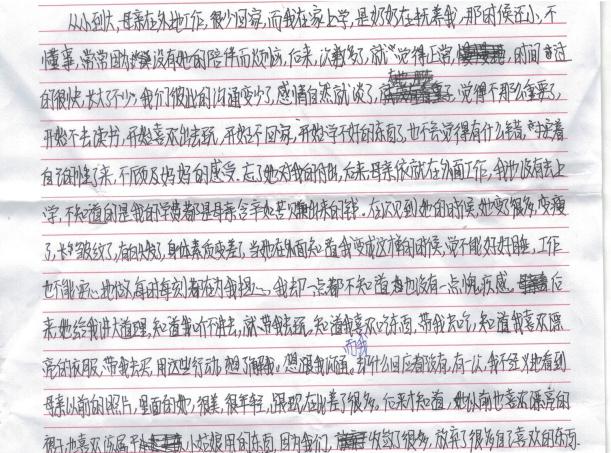 从小到大,母亲在外地工作,很少回家,而我在家上学,是奶奶在抚养我,那时候还小,不
懂事,常常因为没有她的陪伴而烦恼,后来,次数多了,就觉得正常,时间过
的很快,长大了不少,我们彼此的沟通变少了,感情自然就淡了,觉得不那么重要了,
开始不去读书,开始喜欢出去玩,开始不回家,开始学不好的东西了,也不会觉得有什么错,对着
自己的性子来,不顾及妈妈的感受,忘了她对我的付出,后来母亲依就在外面工作,我也没有去上
学,不知道的是我的学费都是母亲含辛茹苦赚出来的钱。在次见到她的时候,她变了很多,变瘦
了,长了皱纹了,有白头发了,身体素质变差了,当她在外面知道我变成这样的时候,觉不能好好睡,工作
也不能安心,她每时每刻都在为我担心,我却一点都不知道也没有一点愧疚感,后
来她给我讲大道理,知道我听不进去,就带我去玩,知道我喜欢吃东西,带我去吃,知道我喜欢漂
亮的衣服,带我去买,用这些行动,想了解我,想跟我沟通,而我却什么回应都没有,有一次,我不经意地看到
母亲以前的照片,里面的她,很美,很年轻,跟现在比差了很多,后来才知道,她以前也喜欢漂亮的
裙子,也喜欢该属于小姑娘用的东西,因为我们,收敛了很多,放弃了很多自己喜欢的东西